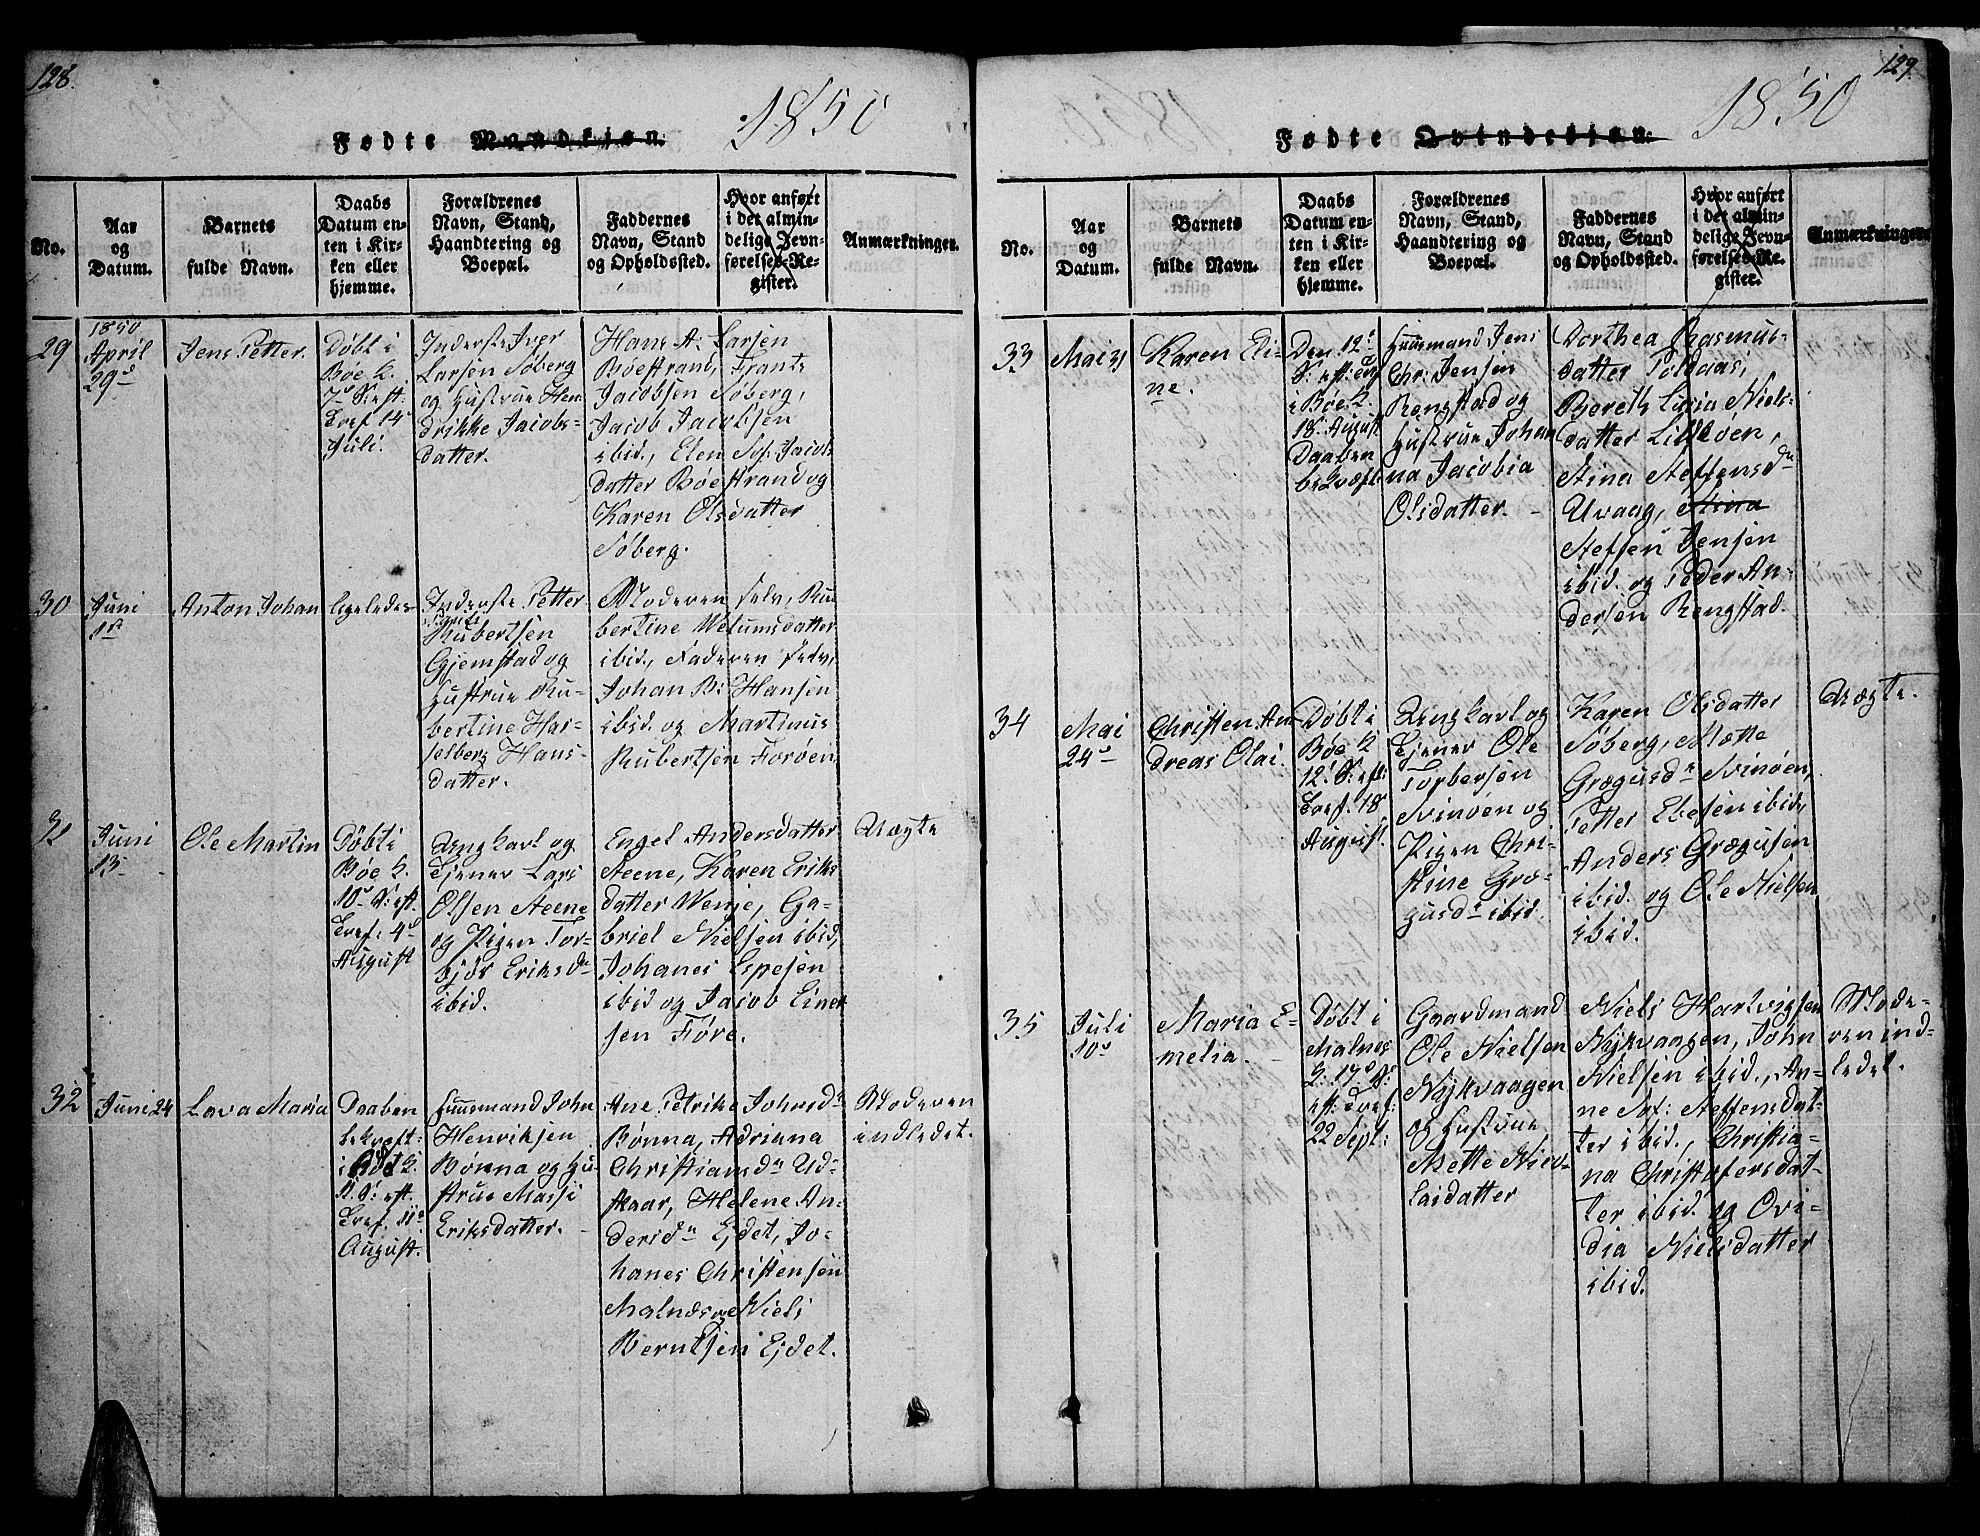 128.
1850
Fødte Mandkjøn.
No.
Aar
og
Datum.
Barnets
fulde Navn.
Daabs
Datum en-
ten i Kir-
ken eller
hjemme.
Forældrenes
Navn, Stand,
Haandtering og
Boepæl.
Faddernes
Navn, Stand
og Opholdssted.
Hvor anført
i det almin-
delige Jevn-
førelses-Re-
gister.
Anmærkninger.
29
1850
April
29d
Jens Petter.
Døbt i
Bøe K.
7de S: eft:
Tref 14
Juli.
Inderste Iver
Larsen Søberg
og Hustrue Hen-
drikke Jacobs-
datter.
Hans A: Larsen
Bøestrand, Frants
Jacobsen Søberg,
Jacob Jacobsen
ibid., Elen Sof. Jacobs
datter Bøestrand og
Karen Olsdatter
Søberg.
30
Juni
1st
Anton Johan
ligeledes
Inderste Petter
Rubertsen
Gjemstad og
Hustrue Ru-
bertine Har-
selberg Hans-
datter.
Moderen selv, Ru
bertine Welumsdatter
ibid., Faderen selv,
Johan B: Hansen
ibid. og Martinus
Rubertsen Forøen
31
Juni
13
Ole Martin
Døbt i
Bøe K.
10de S: eft.
Tref: 4d
August
Ungkarl og
Tjener Lars
Olsen Steene
og Pigen Tor-
bjør Eriksdr
ibid.
Engel Andersdatter
Steene, Karen Eriks
datter Wenje, Ga-
briel Nielsen ibid,
Johanes Espesen
ibid og Jacob Einer
sen Føre.
Uægte
32
Juni 24
Lava Maria
Daaben
bekræft:
i Bøe K.
11. S: eft.
Tref. 11te
August.
Huusmand John
Henriksen
Bønna og Hu-
strue Massi
Eriksdatter.
Ane Petrike Johnsdr
Bønna, Adriana
Christiansdr Ud-
skaar, Helene An-
dersdr Ejdet, Jo-
hanes Christensen
Malnæs og Niels
Berntsen Ejdet.
Moderen
indledet.
129.
1850
Fødte Qvindekjøn.
No.
Aar
og
Datum.
Barnets
fulde Navn.
Daabs
Datum en-
ten i Kir-
ken eller
hjemme.
Forældrenes
Navn, Stand,
Haandtering og
Boepæl.
Faddernes
Navn, Stand
og Opholdssted.
Hvor anført
i det almin-
delige Jevn-
førelses-Re-
gister.
Anmærkninger.
33
Mai 31
Karen Eli-
ne.
Den 12te
S: eft: Tref
i Bøe K.
18. August
Daaben
bekræft.
Huusmand Jens
Chr: Jensen
Rengstad og
Hustrue Johan
na Jacobia
Olsdatter.
Dorthea Rasmus-
datter Poldaas,
Bereth Lucia Niels-
datter Lilleven,
Stina Steffensdr
Uvaag, Stina
Steffen Jensen
ibid. og Peder An-
dersen Rengstad.
34
Mai
24
Christen An-
dreas Olai.
Døbt i
Bøe K
12. S: eft:
Tref. 18
August.
Ungkarl og
Tjener Ole
Torbersen
Svinøen og
Pigen Chri-
stine Gre-
gusdr ibid.
Karen Olsdatter
Søberg, Mætte
Grægusdr Svinøen,
Petter Ebesen ibid,
Anders Grægusen
ibid. og Ole Nielsen
ibid.
Uægte.
35
Juli
10
Maria E-
melia.
Døbt i
Malnes
K: 17de S:
eft: Tref:
22 Sept:
Gaardmand
Ole Nielsen
Nykvaagen
og Hustrue
Mette Nico-
laidatter
Niels Hartvigsen
Nykvaagen, John
Nielsen ibid., An-
ne Sof: Steffensdat-
ter ibid., Christia-
na Christofersdat-
ter ibid. og Ovi-
dia Nielsdatter
ibid.
Mode-
ren ind-
ledet.